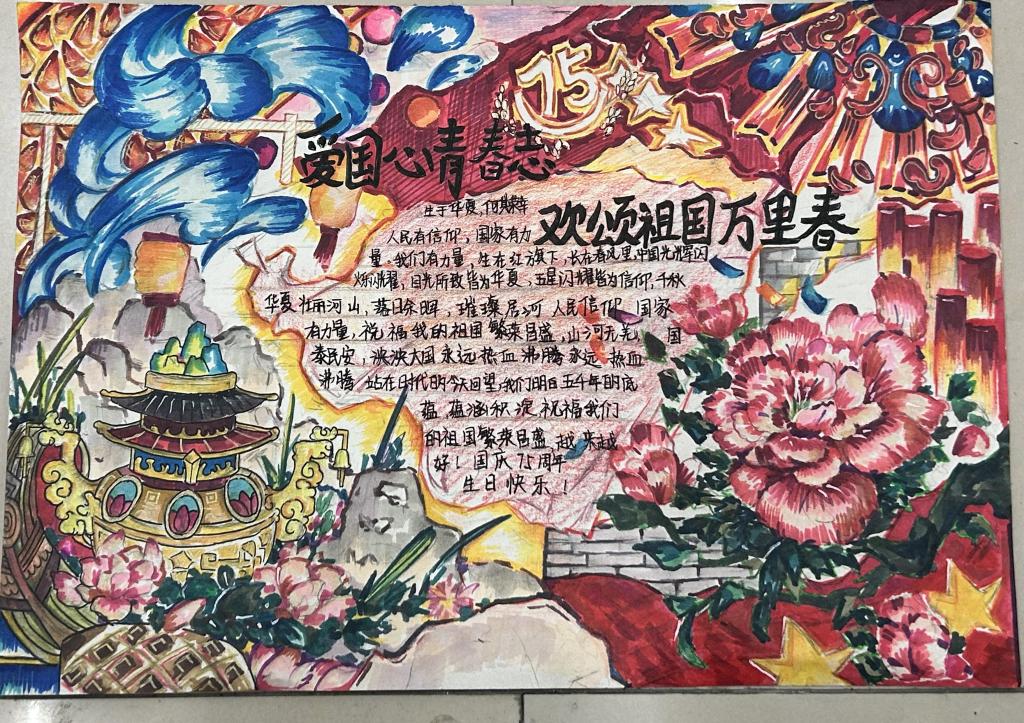 75
爱国心青春志
欢颂祖国万里春
生于华夏,何其荣幸
人民有信仰,国家有力
量。我们有力量,生在红旗下,长在春风里,中国光辉闪
烁闪耀,目光所致皆为华夏,五星闪耀皆为信仰,千秋
华夏壮丽河山,落日余晖,璀璨星河 人民信仰 国家
有力量,祝福我的祖国繁荣昌盛,山河无恙 国
泰民安,泱泱大国永远热血沸腾永远热血
沸腾 站在时代的今天回望,我们明白五千年的底
蕴 蕴涵积淀 祝福我们
的祖国繁荣昌盛 越来越
好!国庆75周年
生日快乐!